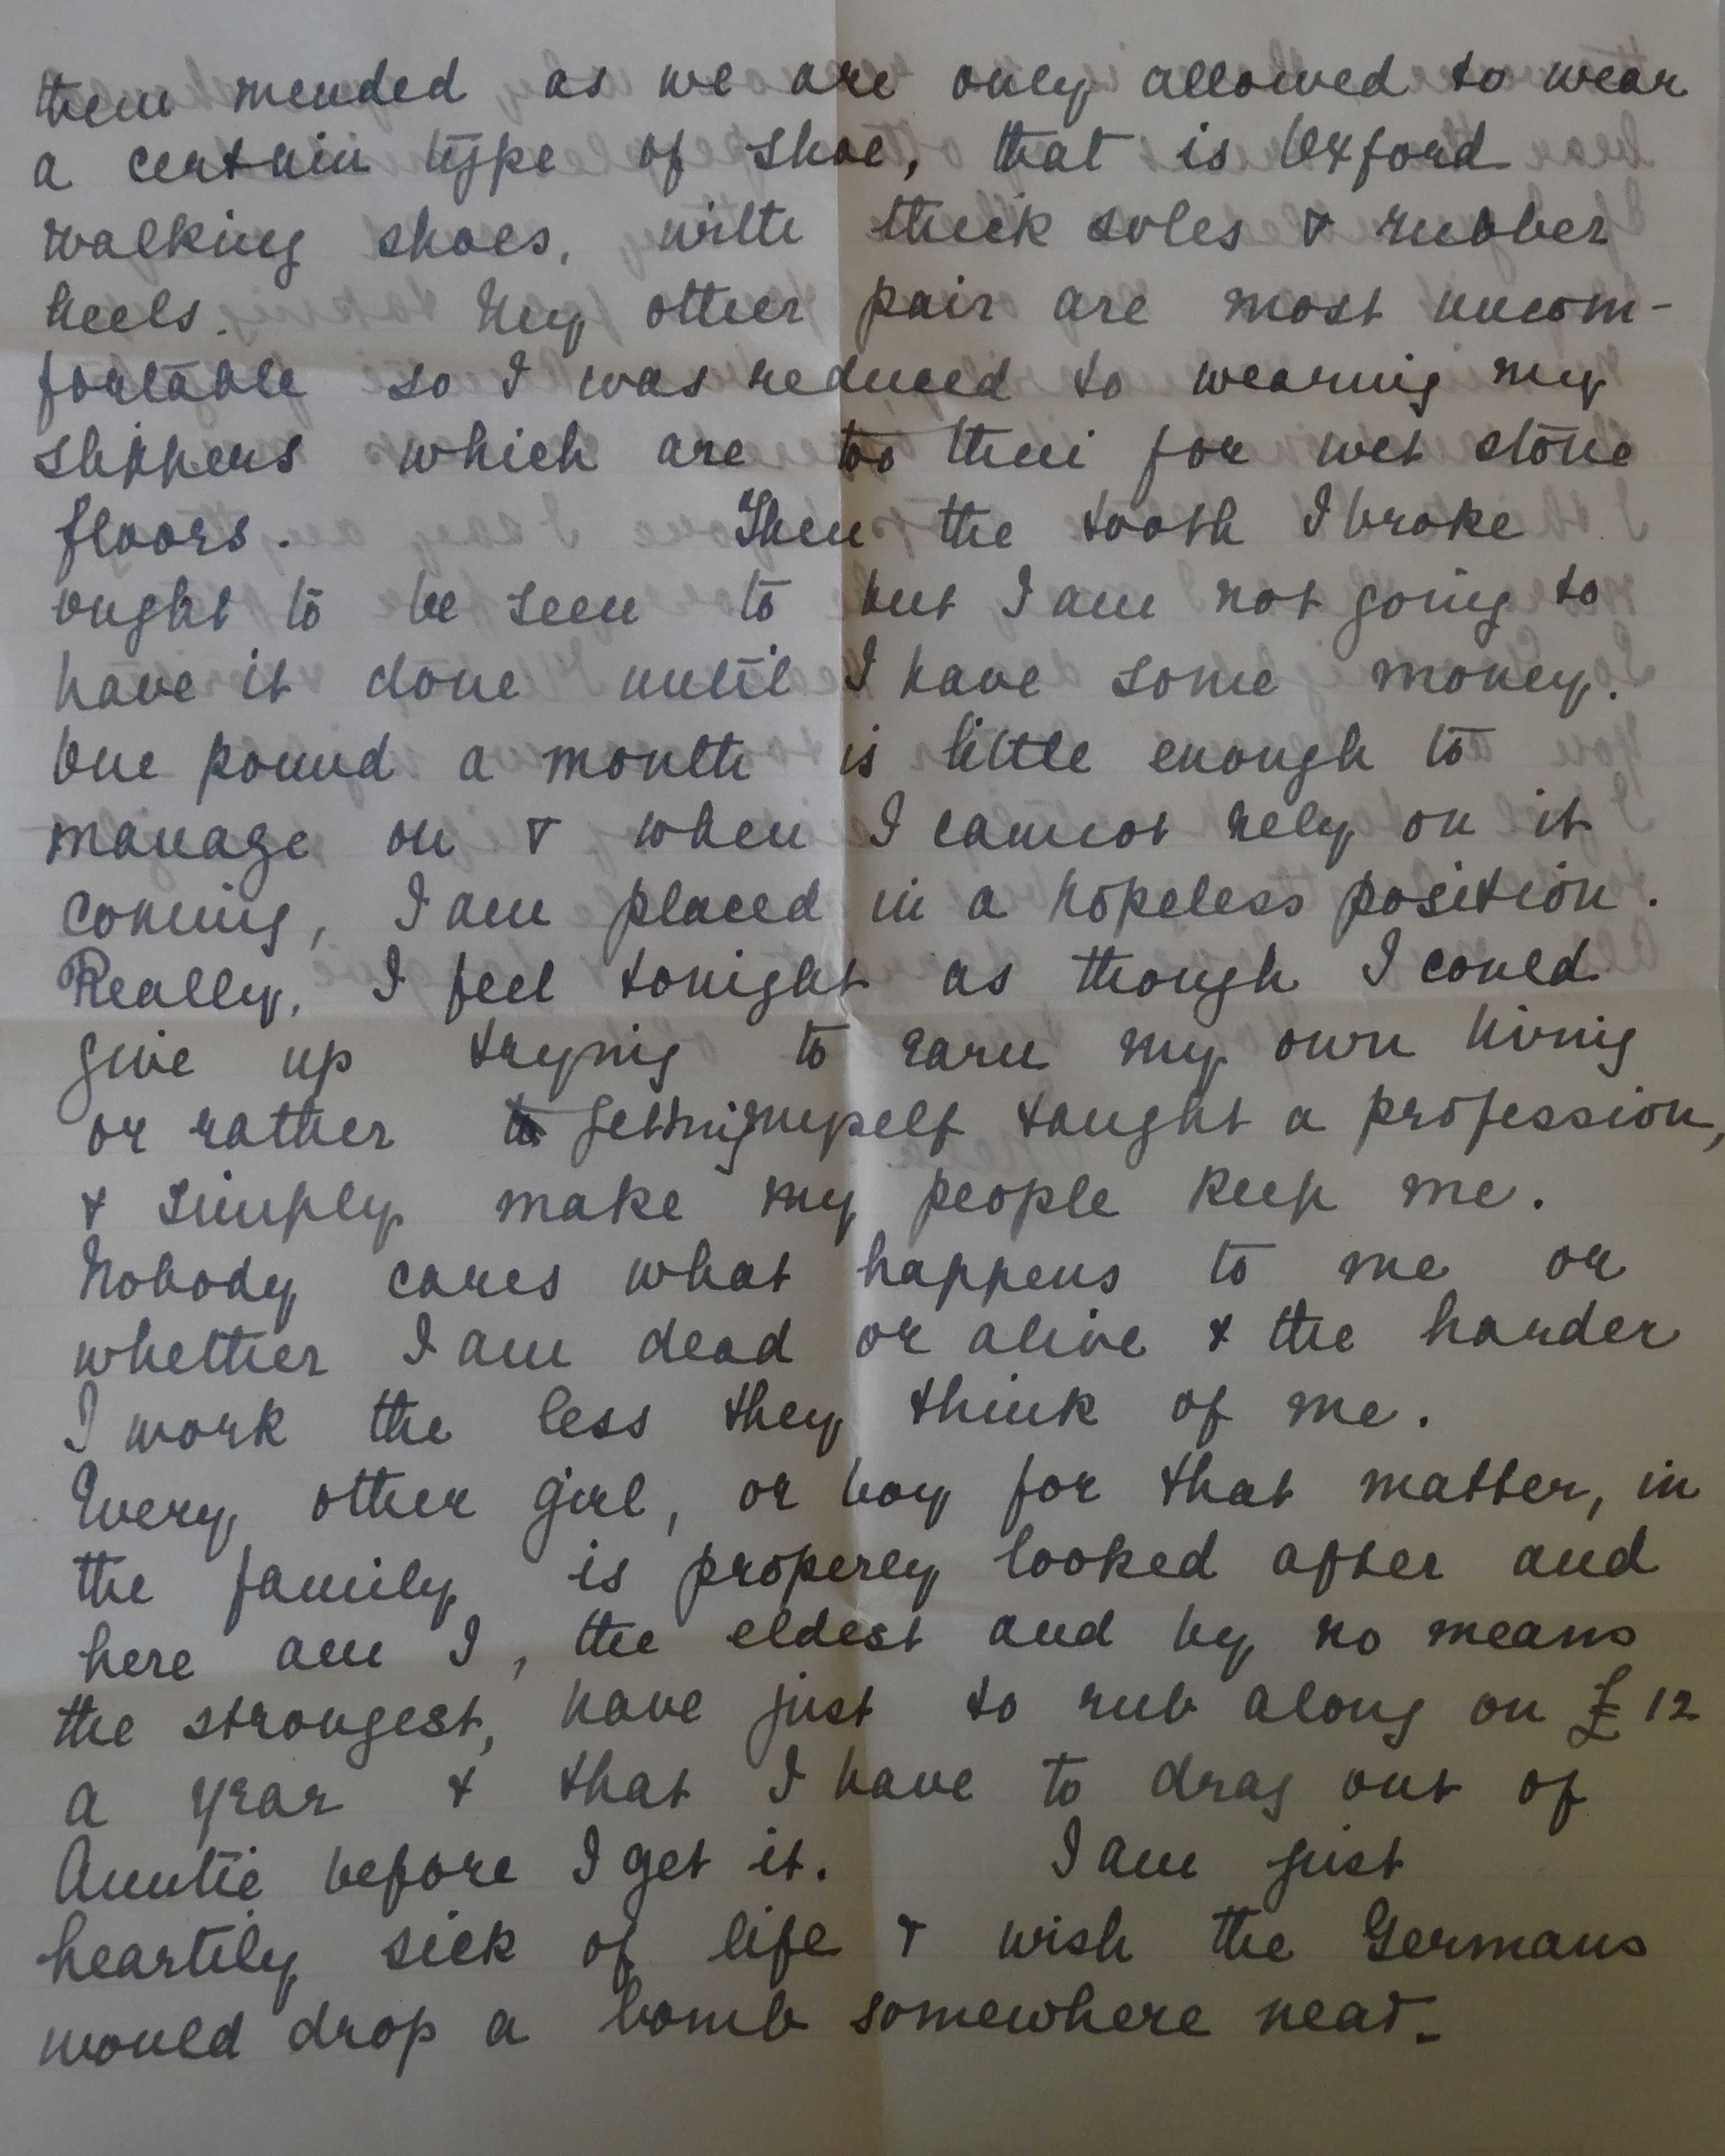 them mended as we are only allowed to wear
a certain type of shoe, that is Oxford
walking shoes, with thick soles & rubber
heels. My other pair are most uncom-
fortable so I was reduced to wearing my
slippers which are too thin for wet stone
floors. Then the tooth I broke
ought to be seen to but I am not going to
have it done until I have some money.
One pound a month is little enough to
manage on & when I cannot rely on it
coming, I am placed in a hopeless position.
Really, I feel tonight as though I could
give up trying to earn my own living
or rather to getting myself taught a profession,
& simply make my people keep me.
Nobody cares what happens to me or
whether I am dead or alive & the harder
I work the less they think of me.
Every other girl, or boy for that matter, in
the family is properly looked after and
here am I, the eldest and by no means
the strongest, have just to rub along on £12
a year & that I have to drag out of
Auntie before I get it. I am just
heartily sick of life & wish the Germans
would drop a bomb somewhere near.